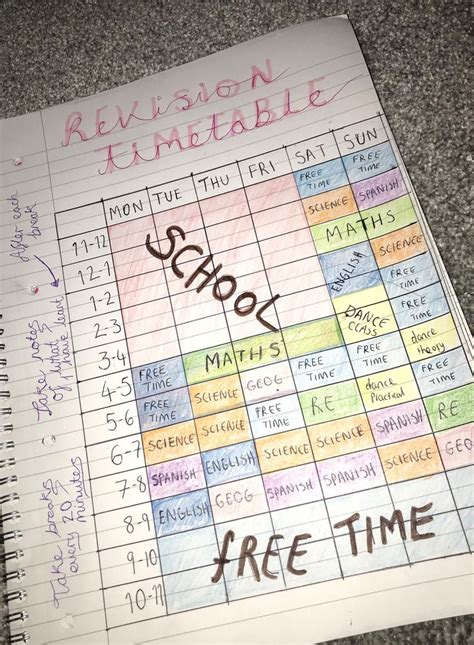 REVISION
TIMETABLE
MON TUE THU FRI SAT SUN
11-12 FREE TIME FREE TIME
12-1 SCIENCE SPANISH
1-2 MATHS
SCHOOL
2-3 ENGLISH SCIENCE
3-4 DANCE CLASS FREE TIME
4-5 FREE TIME MATHS FREE TIME
5-6 FREE TIME SCIENCE GEOG FREE TIME FREE TIME dance theory
6-7 SCIENCE SCIENCE FREE TIME RE dance Practical FREE TIME
7-8 SPANISH ENGLISH SCIENCE SCIENCE SPANISH RE
8-9 ENGLISH GEOG SPANISH SPANISH SCIENCE GEO
9-10
FREE TIME
10-11
After each
break
Take notes
of what
Take breaks
every 20
minutes